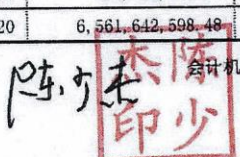 20 6,561,642,598.48
陈少杰
会计机
陈少
杰印